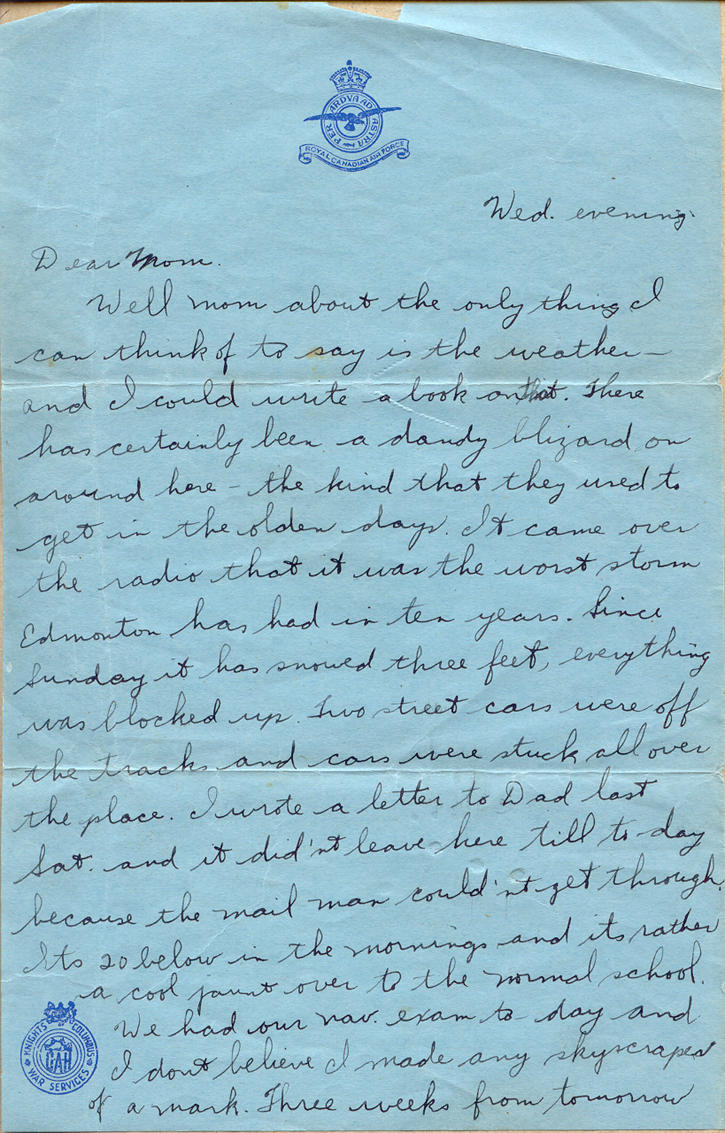 PER ARDVA AD ASTRA
ROYAL CANADIAN AIR FORCE
Wed. evening.
Dear Mom.
Well mom about the only thing I
can think of to say is the weather –
and I could write a book on that. There
has certainly been a dandy blizard on
around here – the kind that they used to
get in the olden days. It came over
the radio that it was the worst storm
Edmonton has had in ten years. Since
Sunday it has snowed three feet, everything
was blocked up. Two street cars were off
the tracks and cars were stuck all over
the place. I wrote a letter to Dad last
Sat. and it did'nt leave here till to-day
because the mail man could'nt get through.
Its 20 below in the mornings and its rather
a cool jaunt over to the normal school.
We had our nav. exam to-day and
I dont believe I made any skyscraper
of a mark. Three weeks from tomorrow
KNIGHTS OF COLUMBUS
CAH
WAR SERVICES